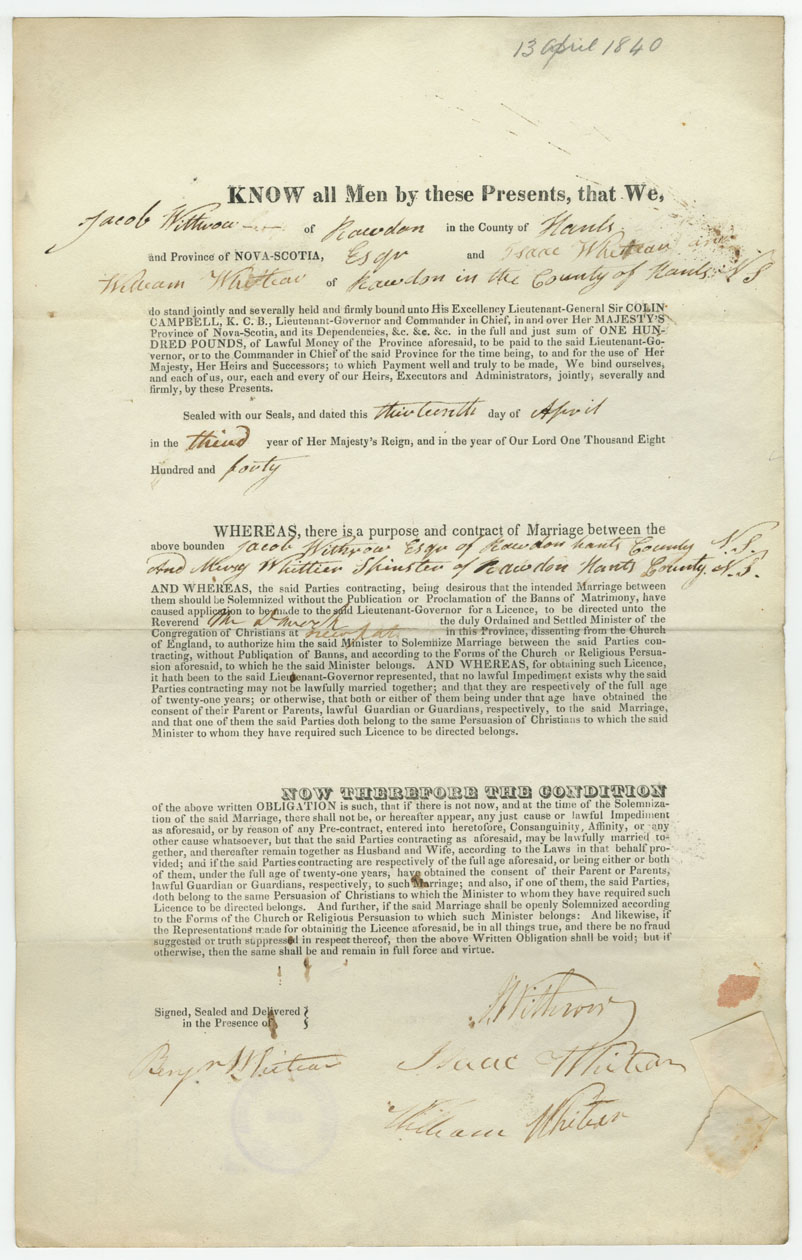 13 April 1840
KNOW all Men by these Presents, that We,
Jacob Withrow of Rawdon in the County of Hants
and Province of NOVA-SCOTIA, Esqr and Isaac Whittear and
William Whittear of Rawdon in the County of Hants N S
do stand jointly and severally held and firmly bound unto His Excellency Lieutenant-General Sir COLIN
CAMPBELL, K. C. B., Lieutenant-Governor and Commander in Chief, in and over Her MAJESTY'S
Province of Nova-Scotia, and its Dependencies, &c. &c. &c. in the full and just sum of ONE HUN-
DRED POUNDS, of Lawful Money of the Province aforesaid, to be paid to the said Lieutenant-Go-
vernor, or to the Commander in Chief of the said Province for the time being, to and for the use of Her
Majesty, Her Heirs and Successors; to which Payment well and truly to be made, We bind ourselves,
and each of us, our, each and every of our Heirs, Executors and Administrators, jointly, severally and
firmly, by these Presents.
Sealed with our Seals, and dated this thirteenth day of April
in the third year of Her Majesty's Reign, and in the year of Our Lord One Thousand Eight
Hundred and forty
WHEREAS, there is a purpose and contract of Marriage between the
above bounden Jacob Withrow Esqr of Rawdon hants County N.S.
And Mary Whittier Spinster of Rawdon Hants County N.S.
AND WHEREAS, the said Parties contracting, being desirous that the intended Marriage between
them should be Solemnized without the Publication or Proclamation of the Banns of Matrimony, have
caused application to be made to the said Lieutenant-Governor for a Licence, to be directed unto the
Reverend the duly Ordained and Settled Minister of the
Congregation of Christians at Newport in this Province, dissenting from the Church
of England, to authorize him the said Minister to Solemnize Marriage between the said Parties con-
tracting, without Publication of Banns, and according to the Forms of the Church or Religious Persua-
sion aforesaid, to which he the said Minister belongs. AND WHEREAS, for obtaining such Licence,
it hath been to the said Lieutenant-Governor represented, that no lawful Impediment exists why the said
Parties contracting may not be lawfully married together; and that they are respectively of the full age
of twenty-one years; or otherwise, that both or either of them being under that age have obtained the
consent of their Parent or Parents, lawful Guardian or Guardians, respectively, to the said Marriage,
and that one of them the said Parties doth belong to the same Persuasion of Christians to which the said
Minister to whom they have required such Licence to be directed belongs.
NOW THEREFORE THE CONDITION
of the above written OBLIGATION is such, that if there is not now, and at the time of the Solemniza-
tion of the said Marriage, there shall not be, or hereafter appear, any just cause or lawful Impediment
as aforesaid, or by reason of any Pre-contract, entered into heretofore, Consanguinity, Affinity, or any
other cause whatsoever, but that the said Parties contracting as aforesaid, may be lawfully married to-
gether, and thereafter remain together as Husband and Wife, according to the Laws in that behalf pro-
vided; and if the said Parties contracting are respectively of the full age aforesaid, or being either or both
of them, under the full age of twenty-one years, have obtained the consent of their Parent or Parents,
lawful Guardian or Guardians, respectively, to such Marriage; and also, if one of them, the said Parties,
doth belong to the same Persuasion of Christians to which the Minister to whom they have required such
Licence to be directed belongs. And further, if the said Marriage shall be openly Solemnized according
to the Forms of the Church or Religious Persuasion to which such Minister belongs: And likewise, if
the Representations made for obtaining the Licence aforesaid, be in all things true, and there be no fraud
suggested or truth suppressed in respect thereof, then the above Written Obligation shall be void; but if
otherwise, then the same shall be and remain in full force and virtue.
Signed, Sealed and Delivered }
in the Presence of
J Withrow
Benjn Whittear Isaac Whitear
William Whiteer